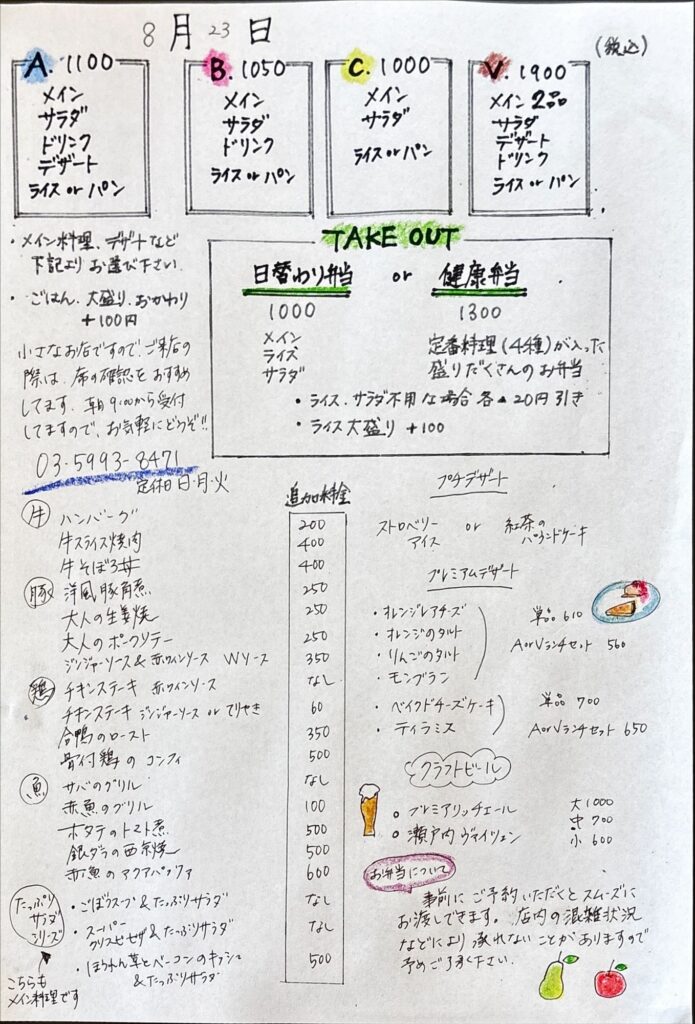 8月23日
(税込)
A. 1100
メイン
サラダ
ドリンク
デザート
ライス or パン
B. 1050
メイン
サラダ
ドリンク
ライス or パン
C. 1000
メイン
サラダ
ライス or パン
V. 1900
メイン 2品
サラダ
デザート
ドリンク
ライス or パン
・メイン料理、デザートなど
下記よりお選び下さい
・ごはん、大盛り、おかわり
+100円
小さなお店ですので、ご来店の
際は、席の確認をおすすめ
してます。朝9:00から受付
してますので、お気軽にどうぞ!!
03-5993-8471
定休日 日・月・火
TAKE OUT
日替わり弁当 or 健康弁当
1000
メイン
ライス
サラダ
1300
定番料理(4種)が入った
盛りだくさんのお弁当
・ライス、サラダ不用な場合 各▲20円引き
・ライス大盛り +100
追加料金
牛
ハンバーグ 200
牛スライス焼肉 400
牛そぼろ丼 400
豚
洋風豚角煮 250
大人の生姜焼 250
大人のポークソテー 250
ジンジャーソース&赤ワインソース Wソース 350
鶏
チキンステーキ 赤ワインソース なし
チキンステーキ ジンジャーソース or てりやき 60
合鴨のロースト 350
骨付鶏のコンフィ 500
魚
サバのグリル なし
赤魚のグリル 100
ホタテのトマト煮 500
銀ダラの西京焼 500
赤魚のアクアパッツァ 600
たっぷり
サラダ
シリーズ
・ごぼうスープ&たっぷりサラダ なし
・スーパー
クリスピーピザ&たっぷりサラダ なし
・ほうれん草とベーコンのキッシュ
&たっぷりサラダ 500
こちらも
メイン料理です
プチデザート
ストロベリー
アイス
or
紅茶の
パウンドケーキ
プレミアムデザート
・オレンジレアチーズ
・オレンジのタルト
・りんごのタルト
・モンブラン
単品 610
AorVランチセット 560
・ベイクドチーズケーキ
・ティラミス
単品 700
AorVランチセット 650
クラフトビール
○プレミアリッチエール
○瀬戸内ヴァイツェン
大1000
中 700
小 600
お弁当について
事前にご予約いただくとスムーズに
お渡しできます。店内の混雑状況
などにより承れないことがありますので
予めご了承下さい.